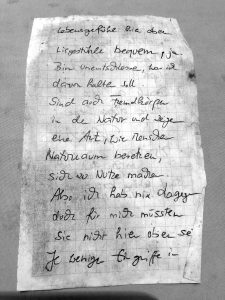 Liegestühle bequem, ja
Bin unentschlossen, was ich
davon halten soll
Sind auch Fremdkörper
in der Natur und zeigen
eine Art, wie Menschen
Naturraum betreten,
sich zu Nutze machen
Also ich hab nix dagegen
doch für mich müssten
sie nicht hier oben se
Je weniger Eingriffe in